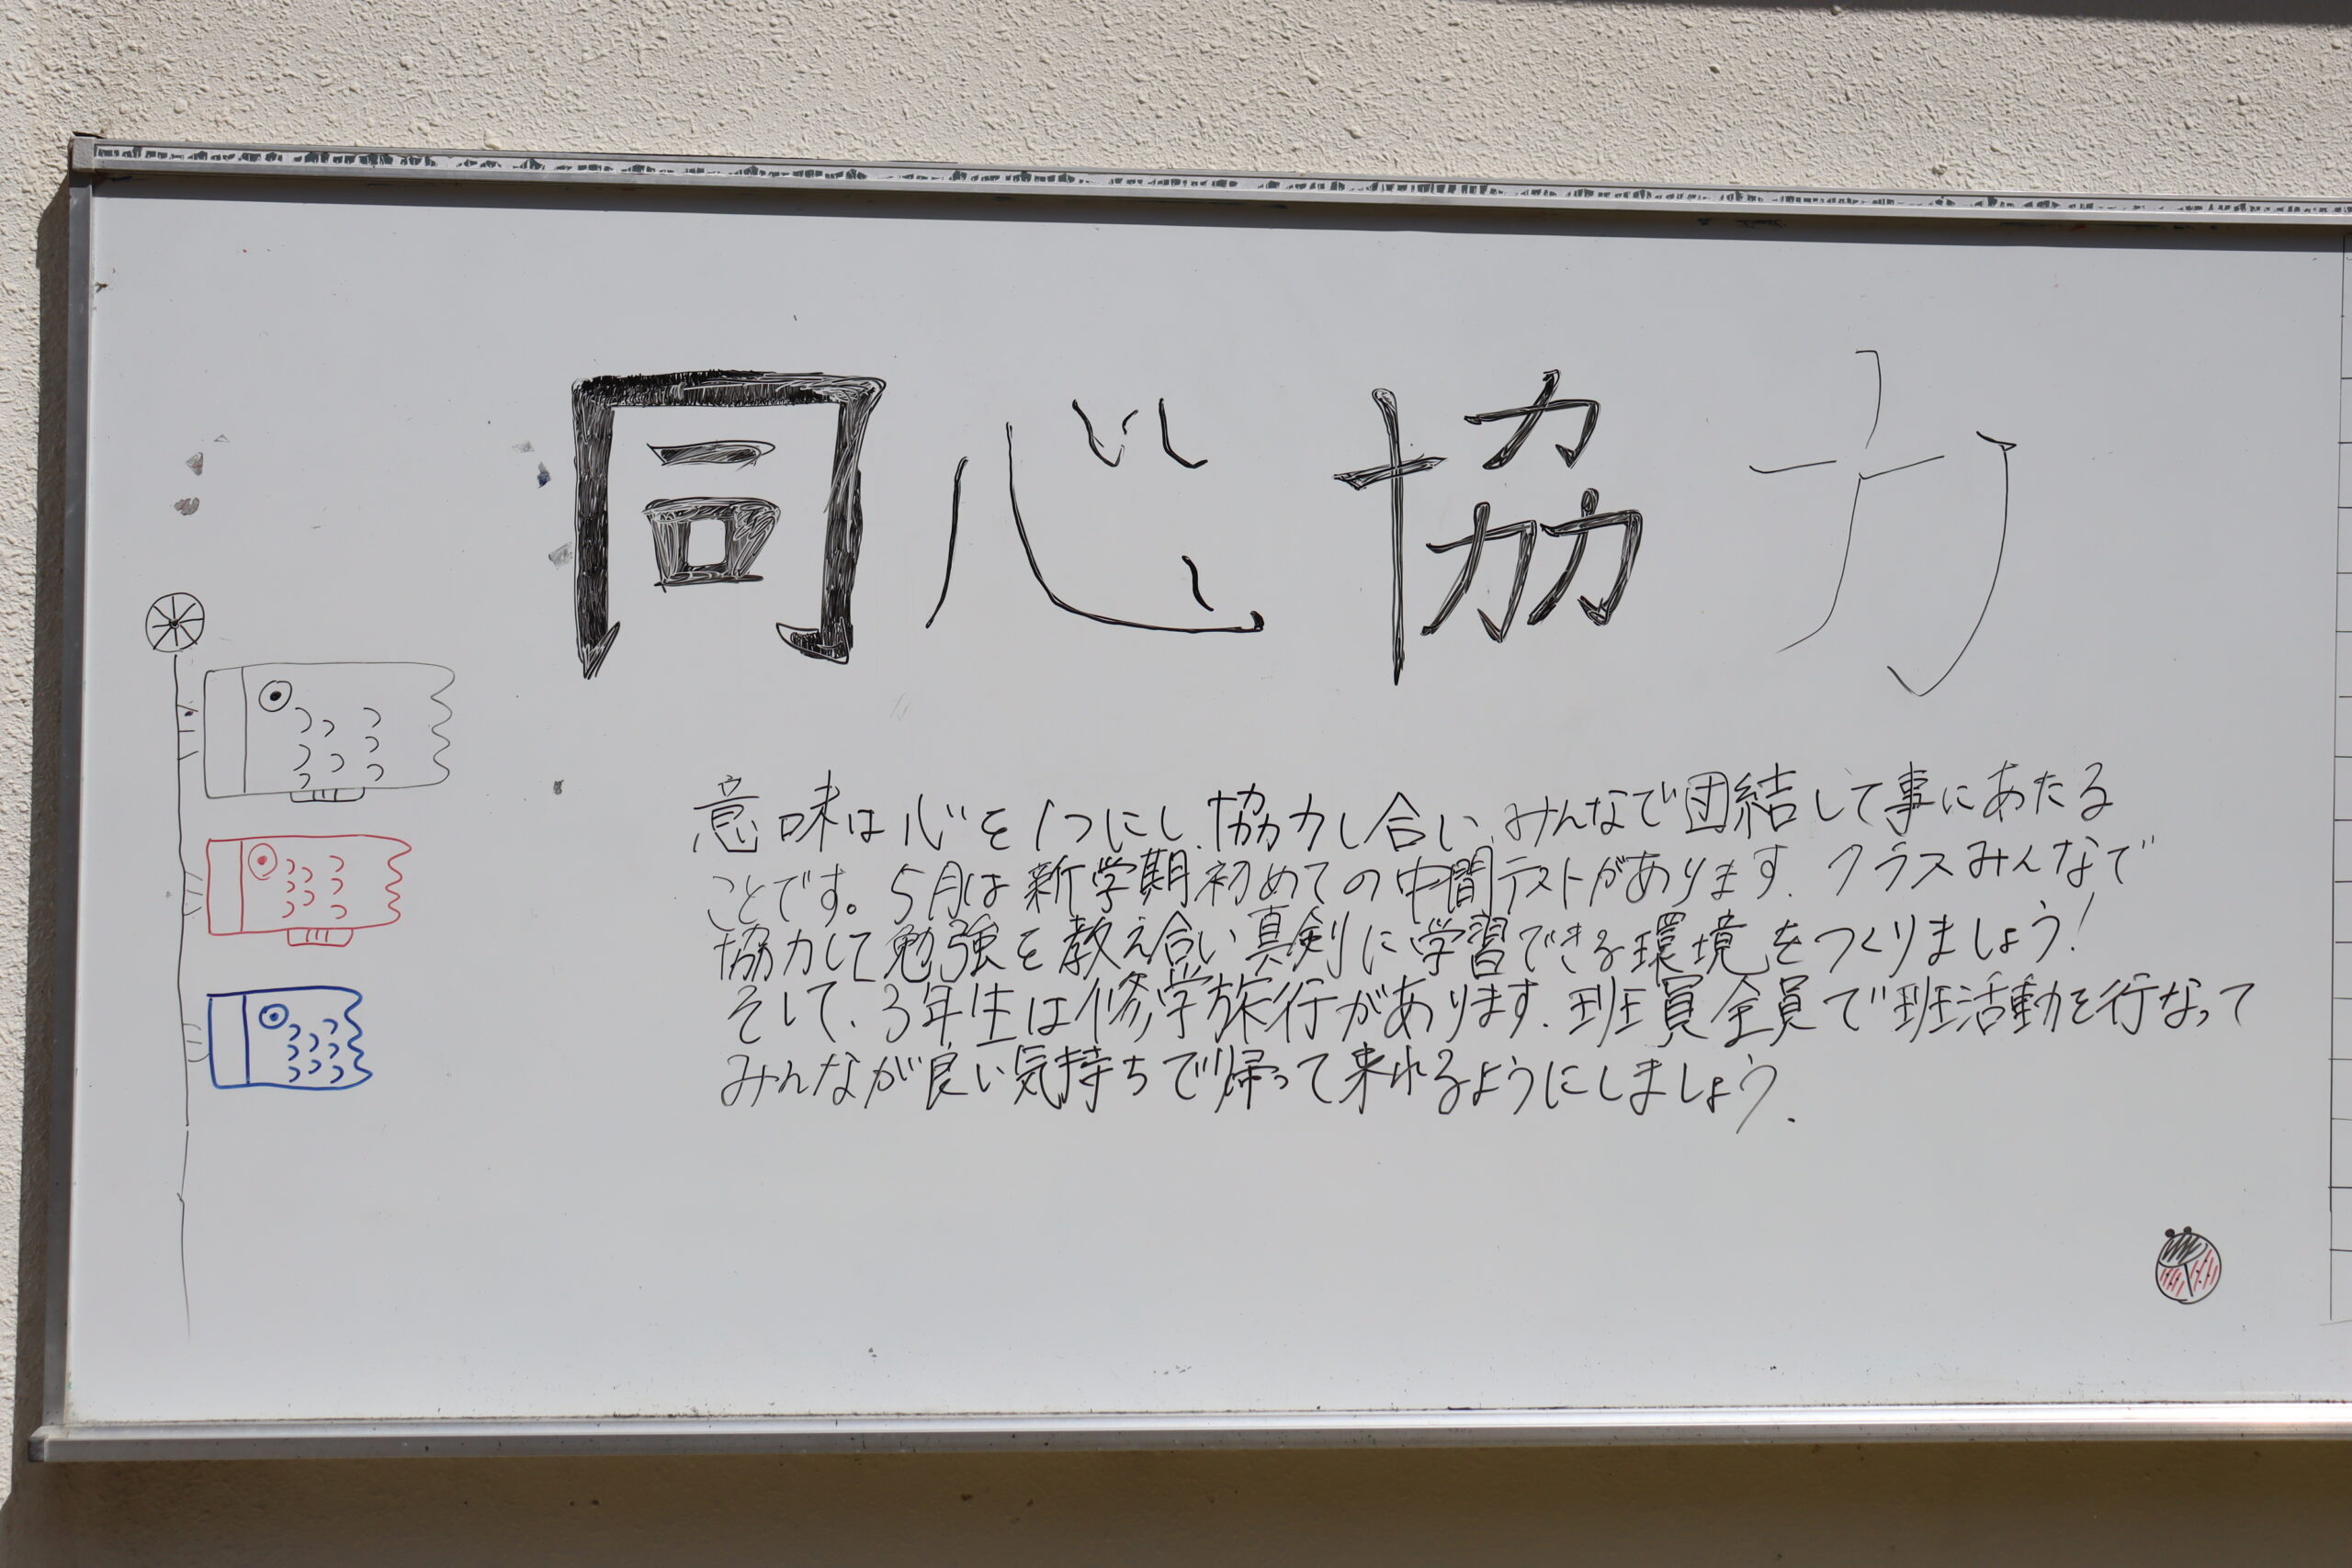 同心協力
意味は心を1つにし、協力し合い、みんなで団結して事にあたる
ことです。5月は新学期初めての中間テストがあります。クラスみんなで
協力して勉強を教え合い真剣に学習できる環境をつくりましょう!
そして、3年生は修学旅行があります。班員全員で班活動を行なって
みんなが良い気持ちで帰って来れるようにしましょう。